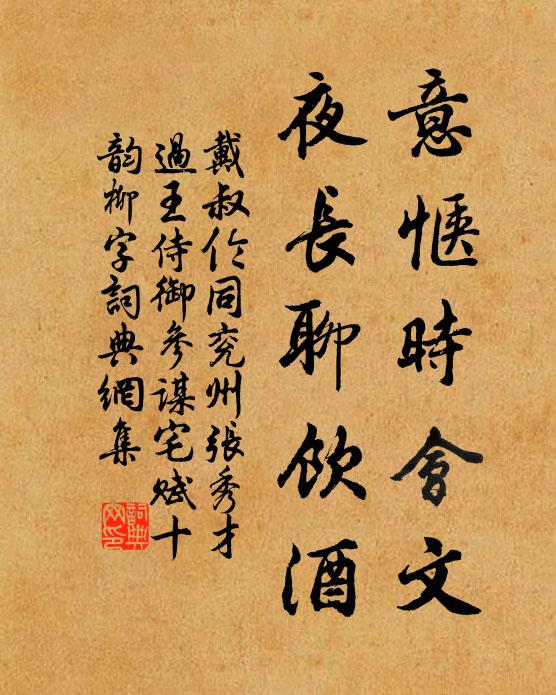 意惬時會文
夜長聊飲酒
戴叔伦同兖州張秀才
過王侍御參謀宅賦十
韵柳字詞典網集
詞典网印